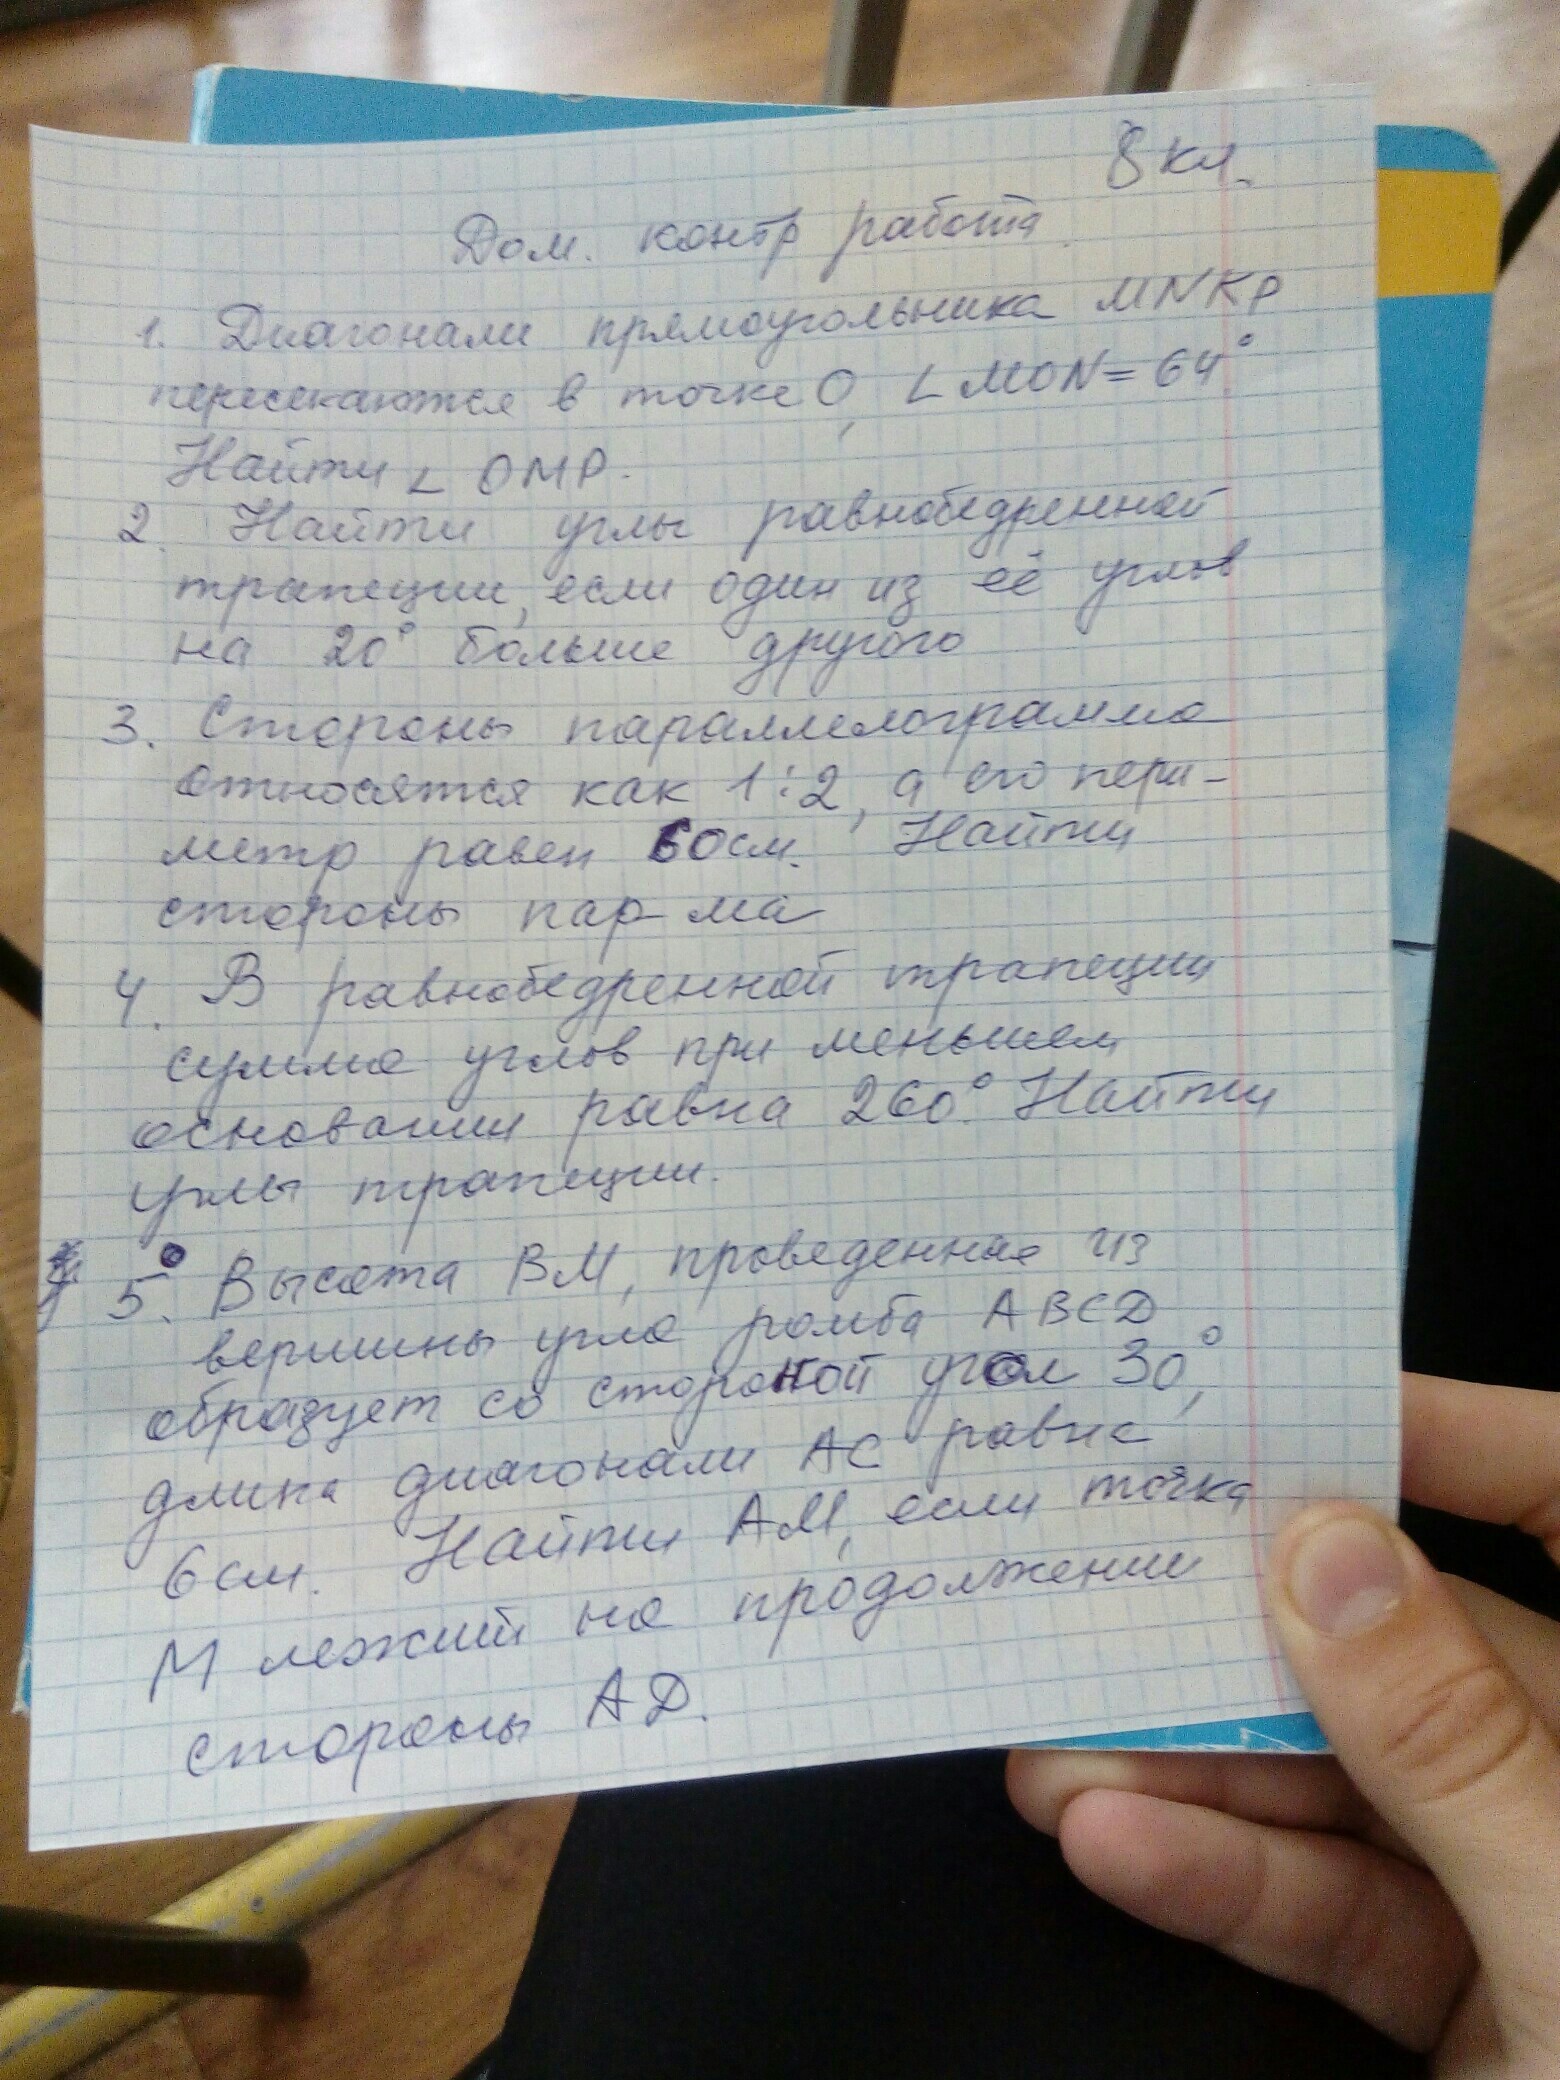 8 кл.
Дом. контр работа.
1. Диагонали прямоугольника MNKP
пересекаются в точке O, ∠ MON = 64°
Найти ∠ OMP.
2. Найти углы равнобедренной
трапеции, если один из её углов
на 20° больше другого
3. Стороны параллелограмма
относятся как 1:2, а его пери-
метр равен 60см. Найти
стороны пар-ма
4. В равнобедренной трапеции
сумма углов при меньшем
основании равна 260°. Найти
углы трапеции.
5. Высота BM, проведенная из
вершины угла ромба ABCD
образует со стороной угол 30°,
длина диагонали AC равна
6 см. Найти AM, если точка
M лежит на продолжении
стороны AD.